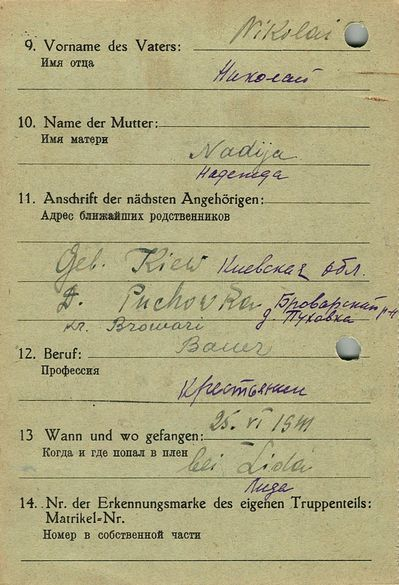 Nikolai
9. Vorname des Vaters:
Имя отца
Николай
10. Name der Mutter:
Имя матери
Nadija
Надежда
11. Anschrift der nächsten Angehörigen:
Адрес ближайших родственников
Geb. Kiew Киевская обл.
D. Puchowka Броварский р-н
kr. Browari д. Пуховка
12. Beruf: Bauer
Профессия
Крестьянин
25. VI 1941
13 Wann und wo gefangen:
Когда и где попал в плен
bei Lida
Лида
14. Nr. der Erkennungsmarke des eigenen Truppenteils:
Matrikel-Nr.
Номер в собственной части